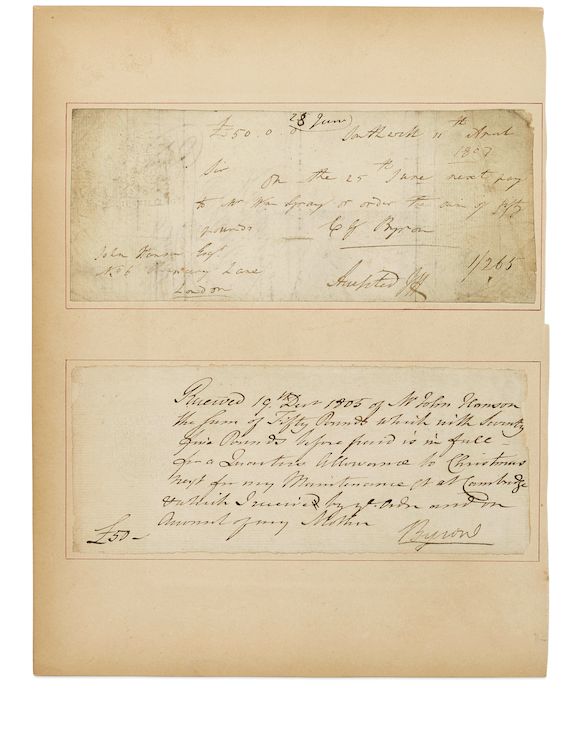 28 June
£50.0.0 Southwell 11th April
1807
Sir
on the 25th June next pay
to Mr Wm Gray or order the sum of fifty
pounds C G Byron
John Hanson Esqr
No 6 Chancery Lane
London
Accepted JH
1/265
Received 19th Decr 1805 of Mr John Hanson
the Sum of Fifty Pounds which with Seventy
five Pounds before paid is in full
for a Quarters Allowance to Christmas
next for my Maintenance &c at Cambridge
& which I received by yr Order and on
Account of my Mother
£50— Byron